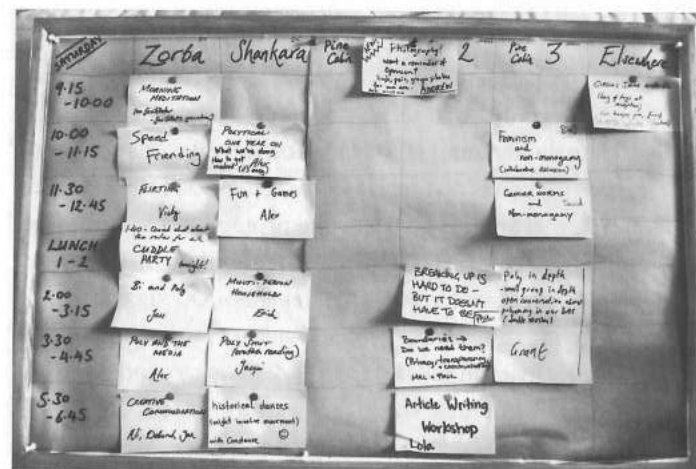 SATURDAY
Zorba
Shankara
Pine Cabin
2
Pine Cabin 3
Elsewhere
Photography!
Want a reminder of
Opencon?
ANDREW
9.15
-10.00
MORNING
MEDITATION
10.00
-11.15
Speed
Friending
POLYTICAL
ONE YEAR ON
What we're doing
How to get
involved
Alex
Feminism
and
non-monogamy
11.30
-12.45
FLIRTING
Vicky
Fun + Games
Alex
Gender norms
and
Non-monogamy
LUNCH
1-2
CUDDLE
PARTY
tonight!
2.00
-3.15
Bi and Poly
Jen
MULTI-PERSON
HOUSEHOLD
BREAKING UP IS
HARD TO DO -
BUT IT DOESN'T
HAVE TO BE
Poly in depth
-small group in depth
open conversation about
Grant
3.30
-4.45
POLY AND THE
MEDIA
Alex
POLY SMUT
(erotica reading)
Jacqui
Boundaries →
Do we need them?
(Privacy, transparency
+ communication)
5.30
-6.45
CREATIVE
COMMUNICATION
historical dances
(might involve movement)
with Constance
Article Writing
Workshop
Lola